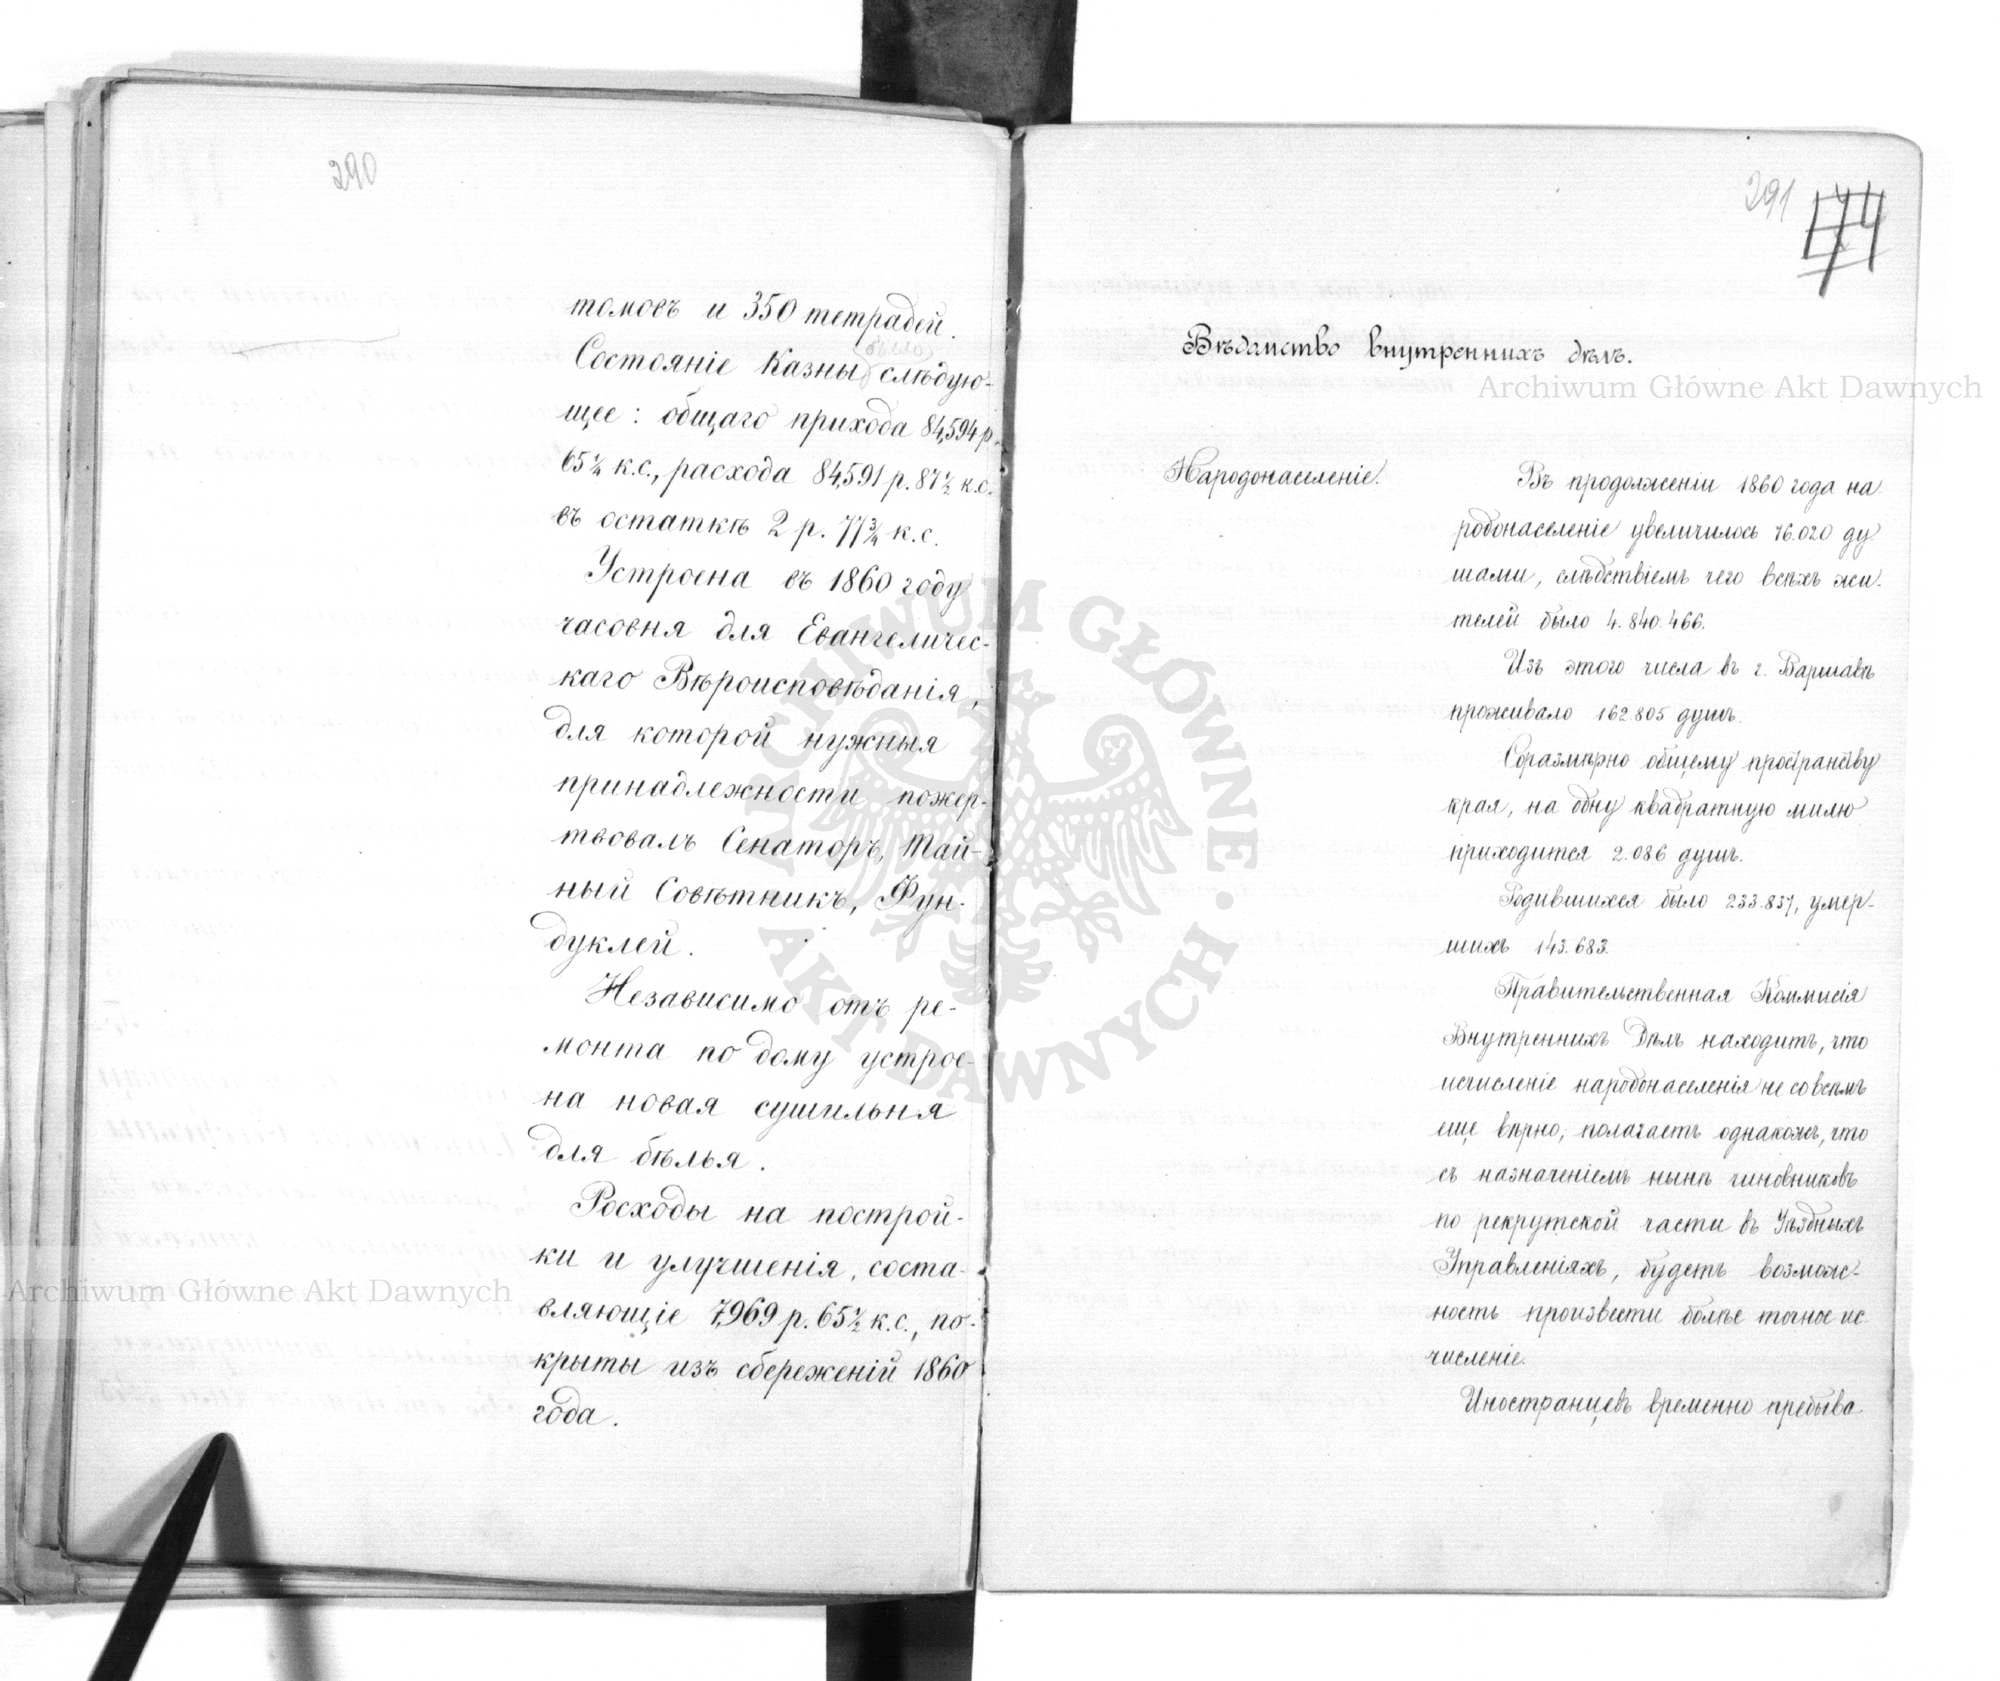 290
томовъ и 350 тетрадей.
Состояніе Казны (было) слѣдую-
щее: общаго прихода 84,594 р.
65 1/4 к.с., расхода 84,591 р. 87 1/2 к.с.
въ остаткѣ 2 р. 77 3/4 к.с.
Устроена въ 1860 году
часовня для Евангеличес-
каго Вѣроисповѣданія,
для которой нужныя
принадлежности пожер-
твовалъ Сенаторъ, Тай-
ный Совѣтникъ, Фун-
дуклей.
Независимо отъ ре-
монта по дому устрое-
на новая сушильня
для бѣлья.
Росходы на построй-
ки и улучшенія, соста-
вляющіе 7,969 р. 65 1/2 к.с., по-
крыты изъ сбереженій 1860
года.
291
174
Вѣдомство внутреннихъ дѣлъ.
Народонаселеніе.
Въ продолженіи 1860 года на
родонаселеніе увеличилось 76.020 ду
шами, слѣдствіемъ чего всѣхъ жи-
телей было 4.840.466.
Изъ этого числа въ г. Варшавѣ
проживало 162.805 душъ.
Соразмѣрно общему пространству
края, на одну квадратную милю
приходится 2.086 душъ.
Родившихся было 233.837, умер-
шихъ 143.683.
Правительственная Коммисія
Внутреннихъ Дѣлъ находитъ, что
исчисленіе народонаселенія не совсѣмъ
еще вѣрно; полагаетъ однакожъ, что
съ назначеніемъ нынѣ чиновниковъ
по рекрутской части въ Уѣздныхъ
Управленіяхъ, будетъ возмож-
ность произвести болѣе точное ис
численіе.
Иностранцевъ временно пребыва-
Archiwum Główne Akt Dawnych
Archiwum Główne Akt Dawnych
ARCHIWUM GŁÓWNE • AKT DAWNYCH •